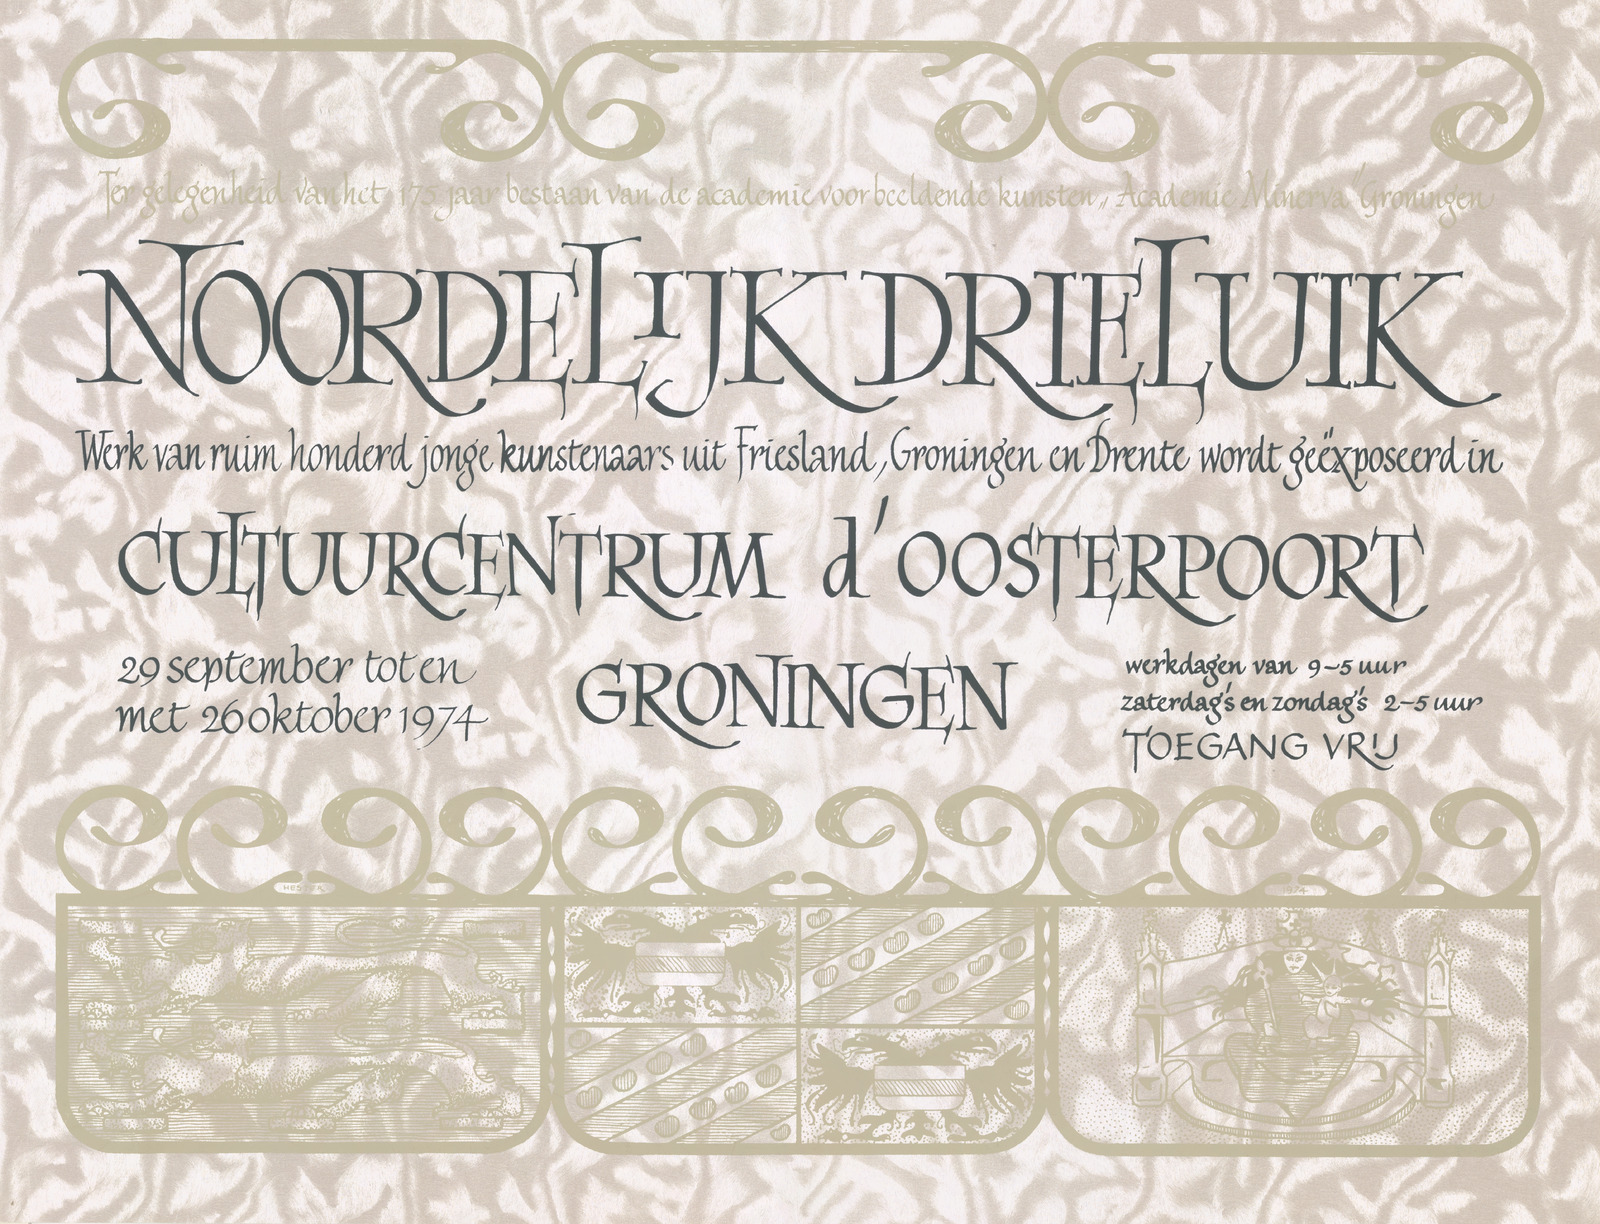 Ter gelegenheid van het 175 jaar bestaan van de academie voor beeldende kunsten „Academie Minerva” Groningen
NOORDELIJK DRIELUIK
Werk van ruim honderd jonge kunstenaars uit Friesland, Groningen en Drente wordt geëxposeerd in
CULTUURCENTRUM d'OOSTERPOORT
29 september tot en
met 26 oktober 1974
GRONINGEN
werkdagen van 9-5 uur
zaterdag's en zondag's 2-5 uur
TOEGANG VRIJ
1974